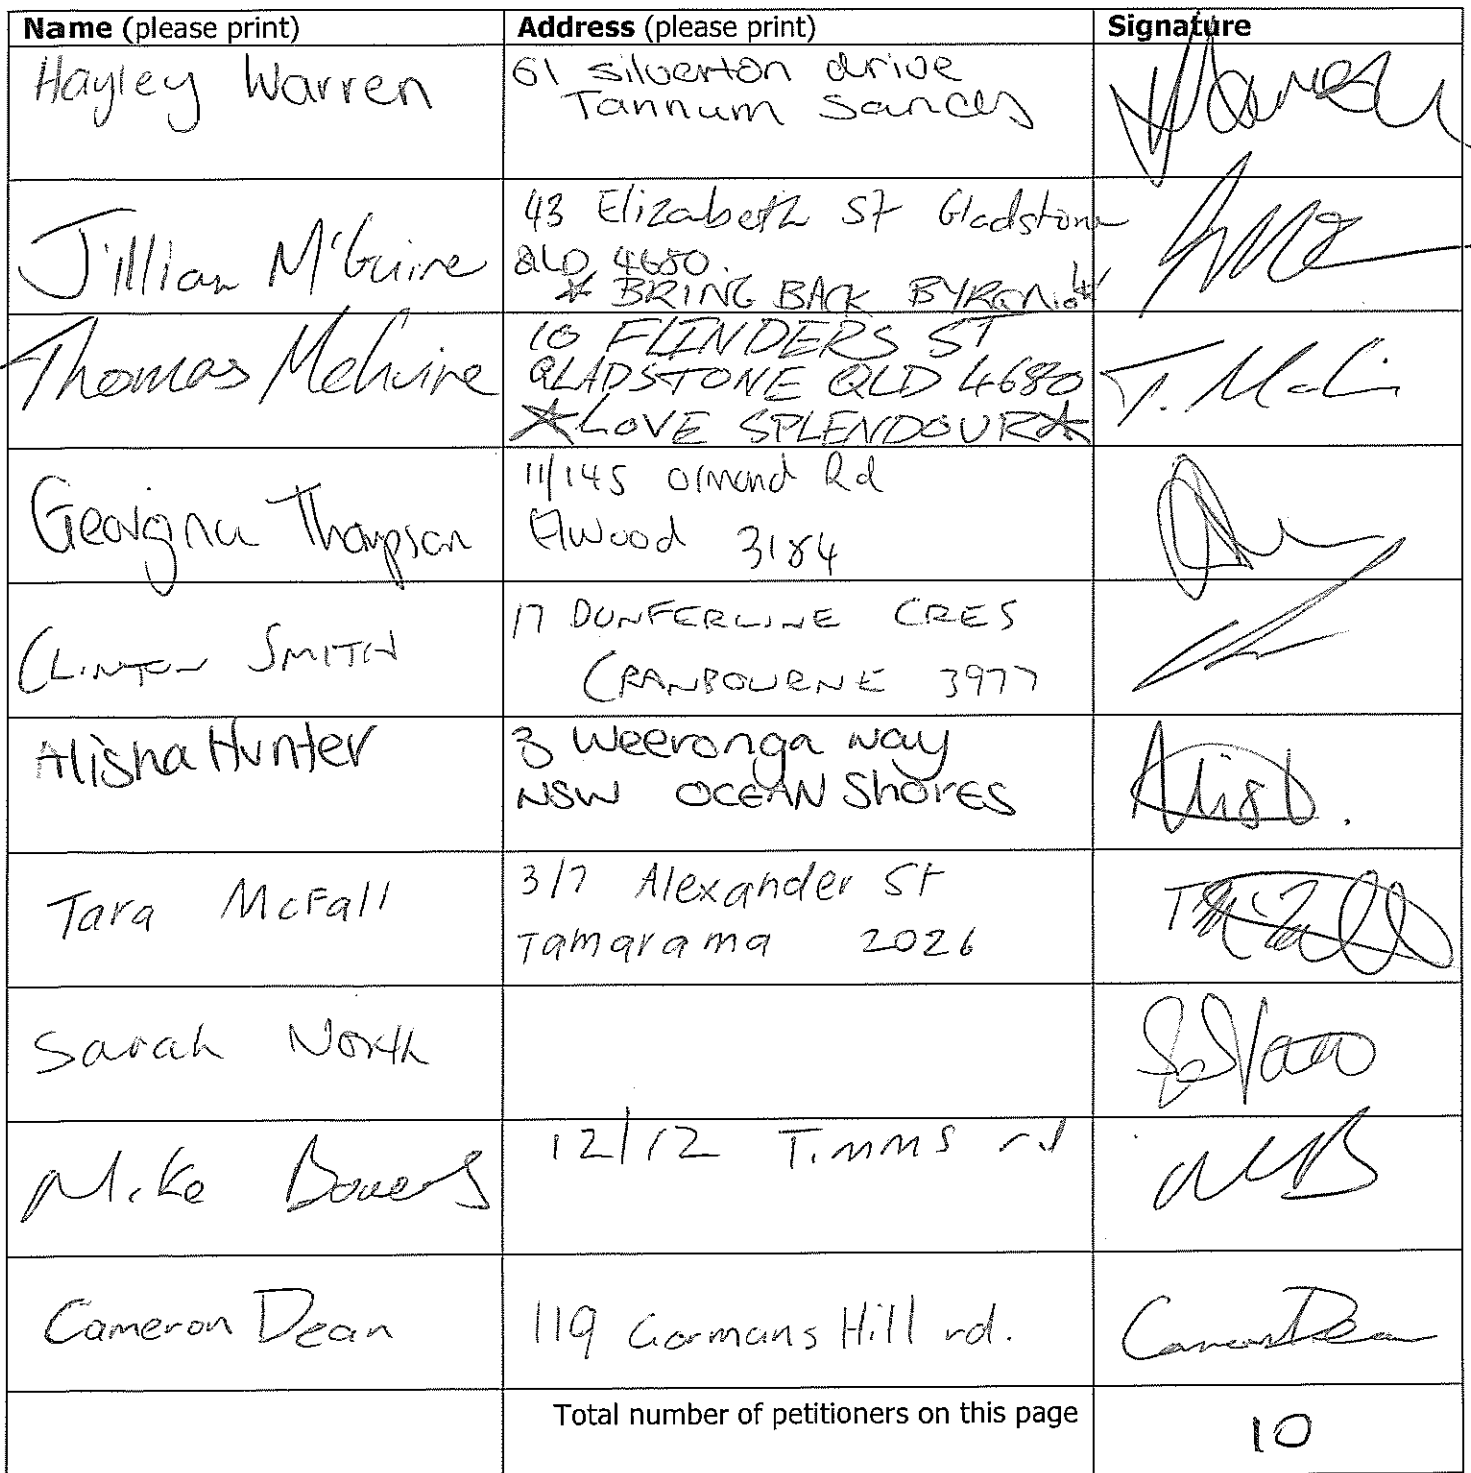 Name (please print) Address (please print) Signature
Hayley Warren
61 silverton drive
Tannum Sands
Jillian McGuire
43 Elizabeth St Gladstone
QLD 4680.
* BRING BACK
Thomas McGuire
10 FLINDERS ST
GLADSTONE QLD 4680
LOVE SPLENDOUR
T.
Georgina Thompson
11/145 Ormond Rd
Elwood 3184
CLINTON SMITH
17 DUNFERLINE CRES
CRANBOURNE 3977
Alisha Hunter
3 Weeronga way
NSW OCEAN ShorES
Tara McFall
3/7 Alexander St
Tamarama 2026
Sarah North
Mike Bowers
12/12 Timms rd
Cameron Dean
119 Gormans Hill rd.
Cameron Dean
Total number of petitioners on this page 10